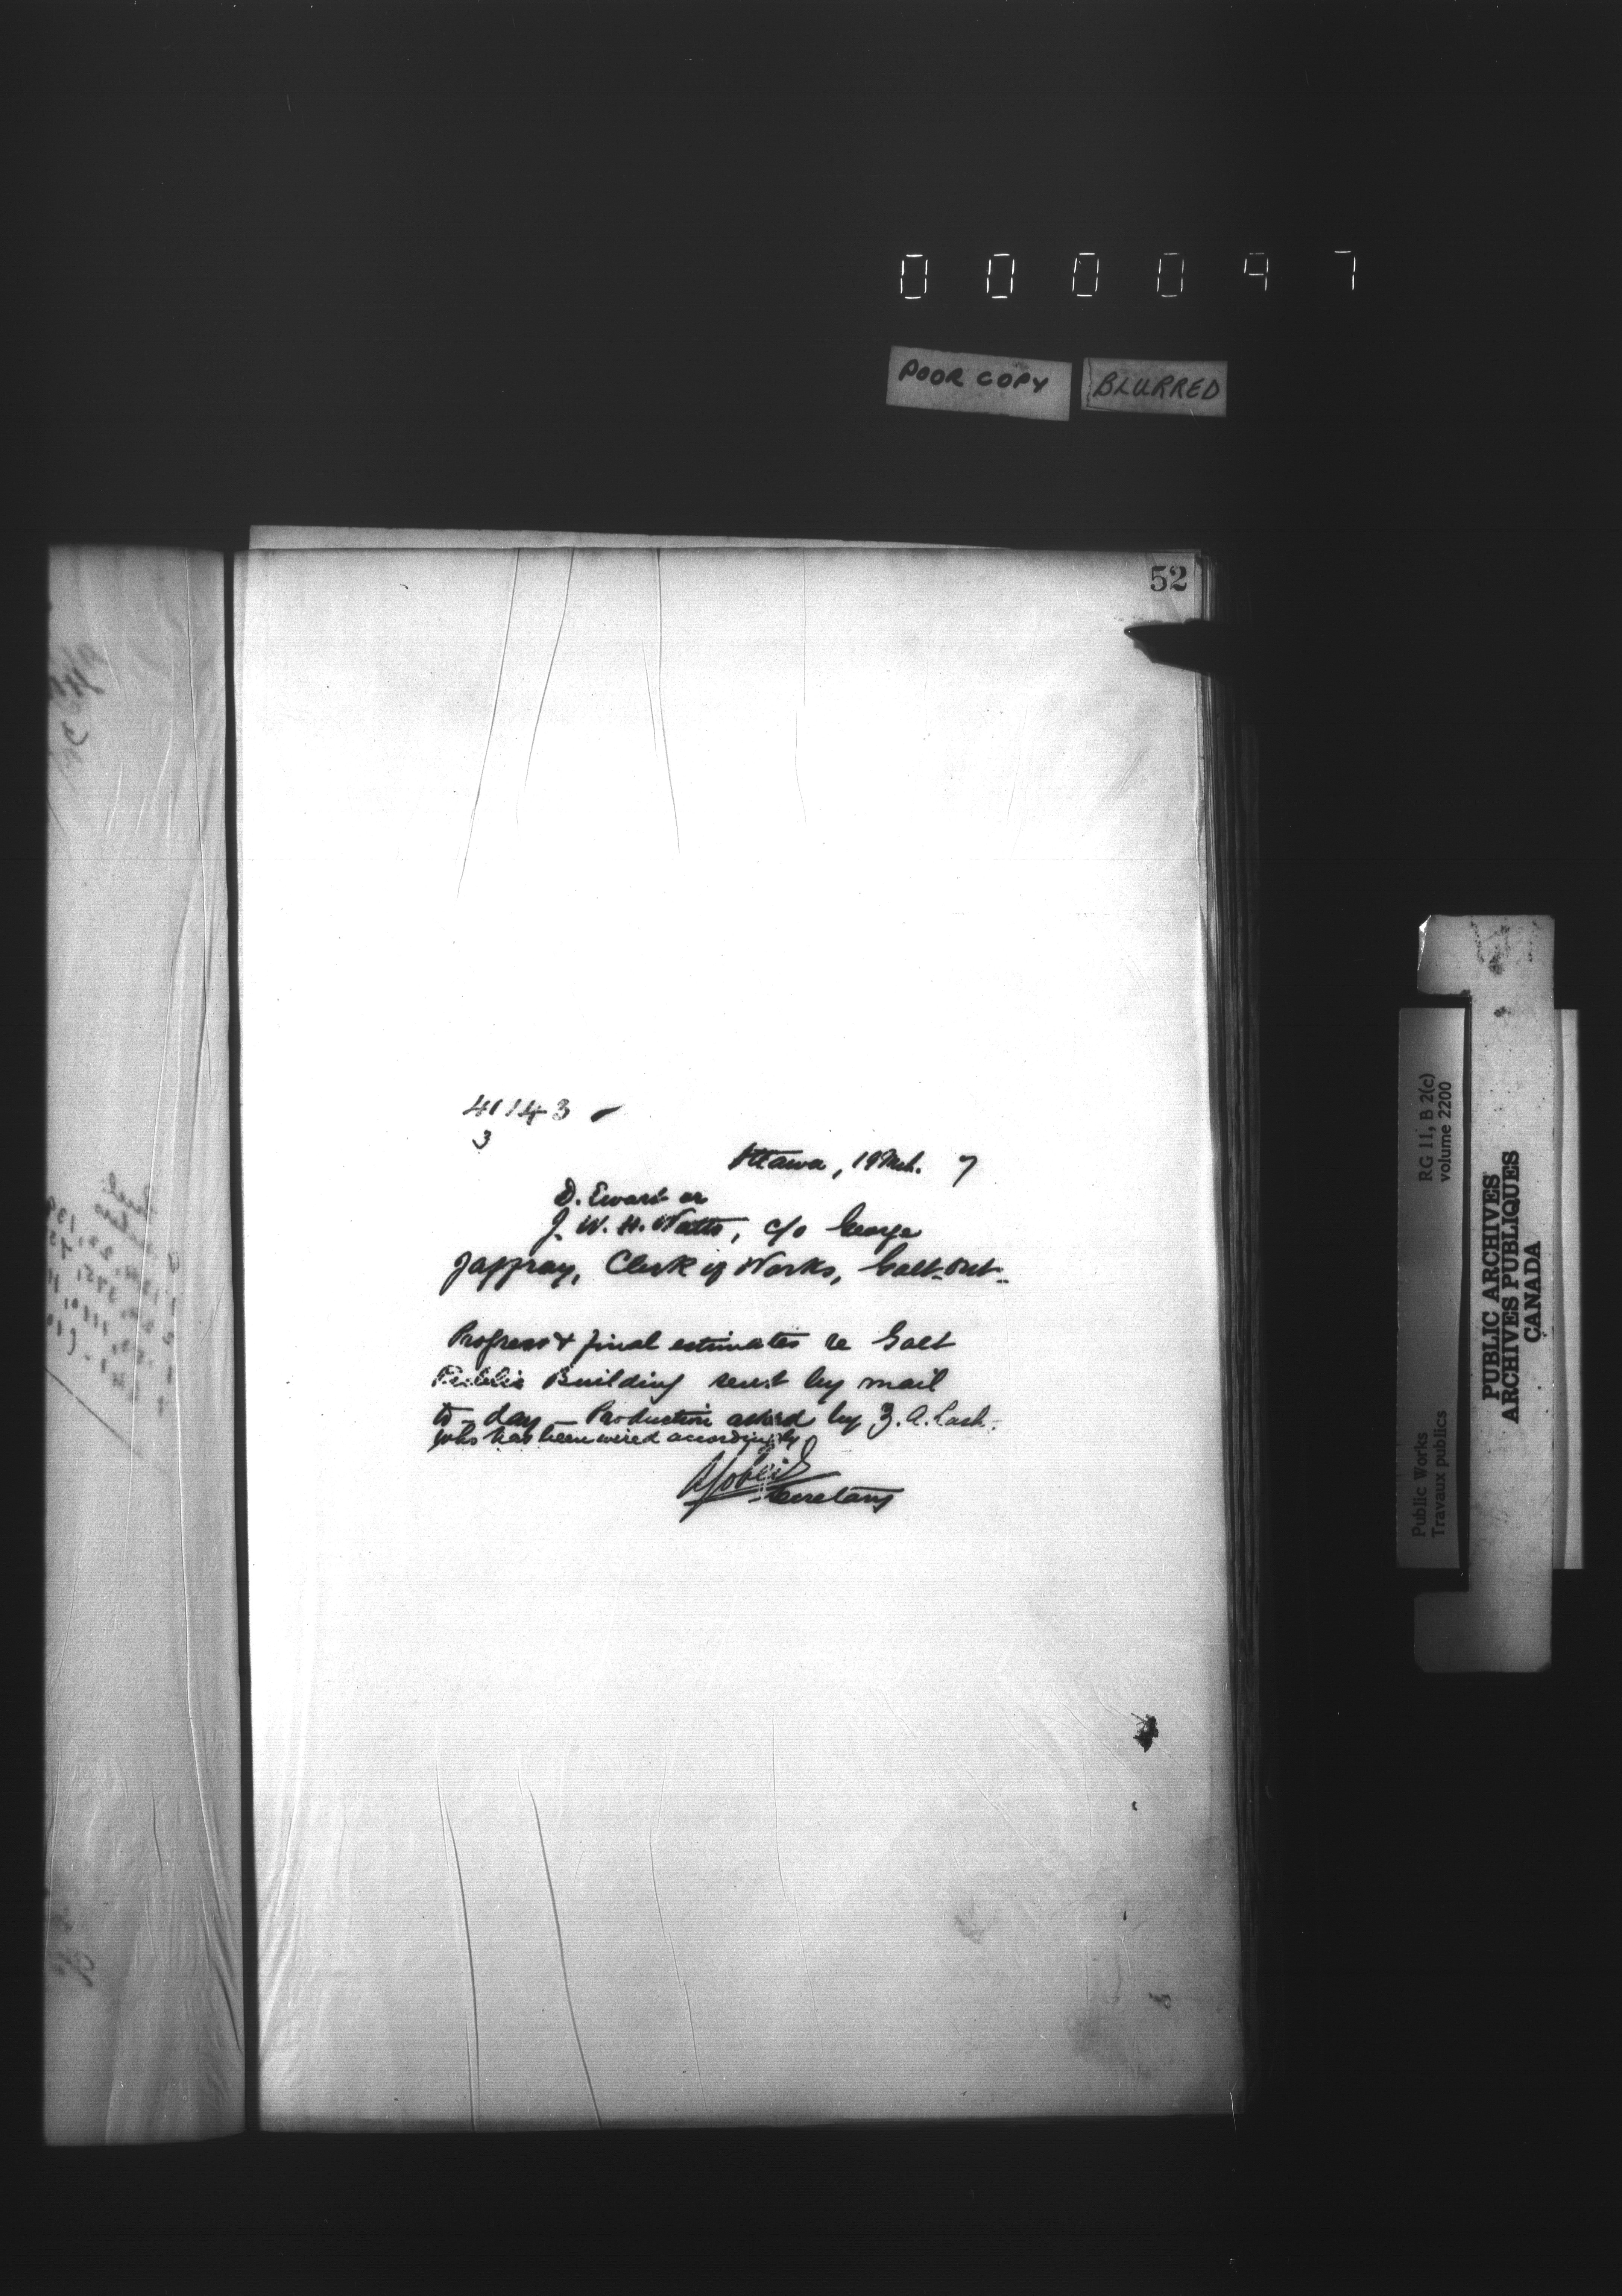 000097
POOR COPY
BLURRED
52
41143
3
Ottawa, 19 Mch. 7
D. Ewart or
J. W. H. Watts, c/o George
Jaffray, Clerk of Works, Galt-Ont-
Progress & final estimates re Galt
Public Building sent by mail
to-day - Production asked by Z. A. Lash-
who has been wired accordingly
Secretary
RG 11, B 2(c)
volume 2200
Public Works
Travaux publics
PUBLIC ARCHIVES
ARCHIVES PUBLIQUES
CANADA